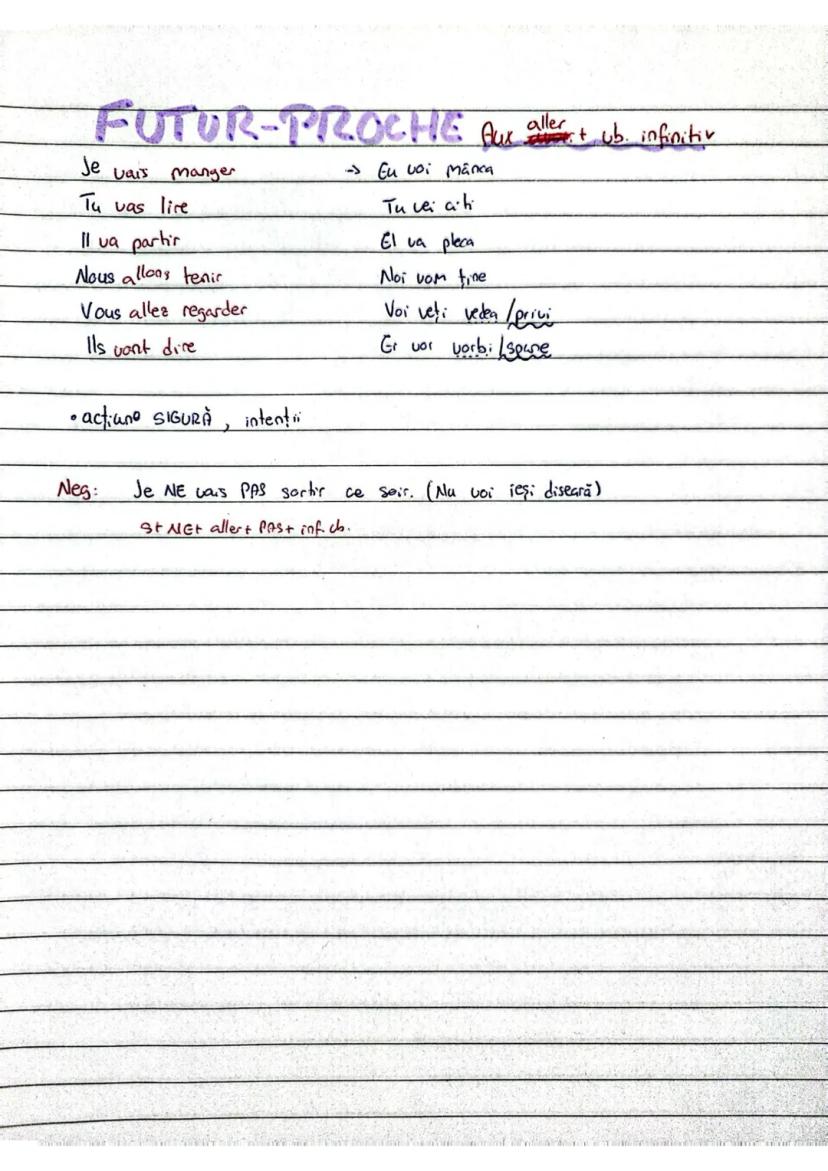 FUTUR-PROCHE Aux aller + vb. infinitiv
Je vais manger -> Eu voi mânca
Tu vas lire Tu vei citi
Il va partir El va pleca
Nous allons tenir Noi vom ține
Vous allez regarder Voi veți vedea /privi
Ils vont dire Ei vor vorbi /spune
• acțiune SIGURĂ, intenții
Neg: Je NE vais PAS sortir ce soir. (Nu voi ieși diseară)
S+ NE+ aller+ PAS+ inf. vb.